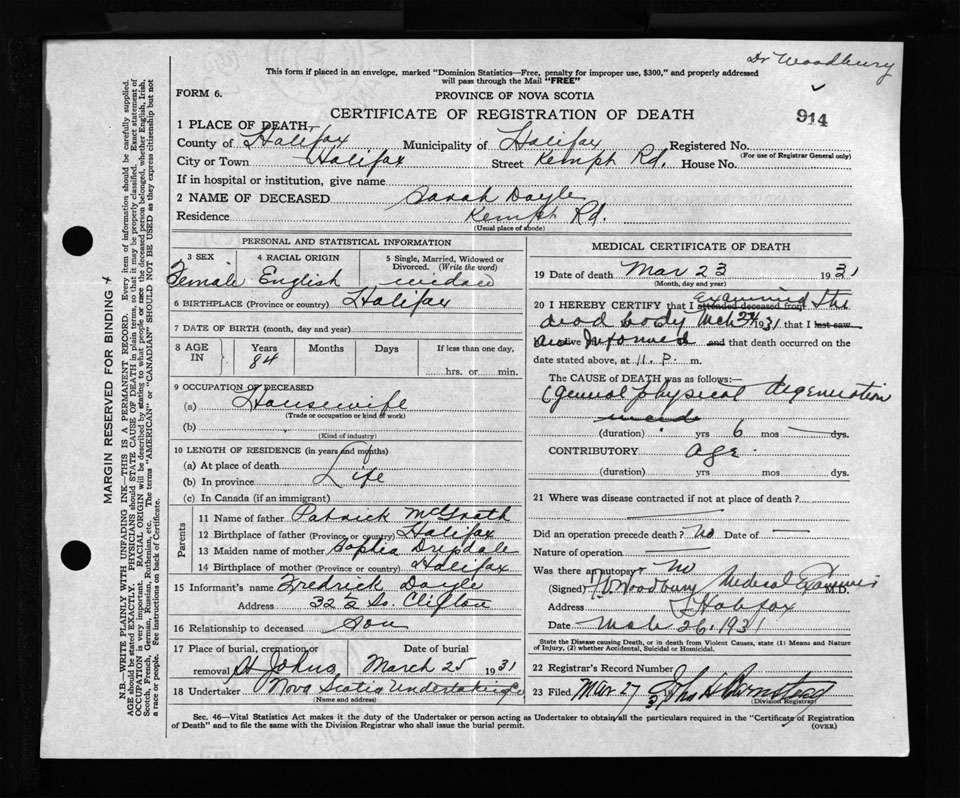 Dr Woodbury
This form if placed in an envelope, marked "Dominion Statistics—Free, penalty for improper use, $300," and properly addressed
will pass through the Mail "FREE"
FORM 6.
PROVINCE OF NOVA SCOTIA
914
CERTIFICATE OF REGISTRATION OF DEATH
1 PLACE OF DEATH—
County of Halifax Municipality of Halifax Registered No.
(For use of Registrar General only)
City or Town Halifax Street Kempt Rd. House No.
If in hospital or institution, give name
2 NAME OF DECEASED Sarah Doyle
Residence Kempt Rd.
(Usual place of abode)
PERSONAL AND STATISTICAL INFORMATION
3 SEX 4 RACIAL ORIGIN 5 Single, Married, Widowed or
Divorced. (Write the word)
Female English widow
6 BIRTHPLACE (Province or country) Halifax
7 DATE OF BIRTH (month, day and year)
8 AGE IN Years Months Days If less than one day,
84
hrs. or min.
9 OCCUPATION OF DECEASED
(a) Housewife
(Trade or occupation or kind of work)
(b)
(Kind of industry)
10 LENGTH OF RESIDENCE (in years and months)
(a) At place of death
(b) In province Life
(c) In Canada (if an immigrant)
Parents
11 Name of father Patrick McGrath
12 Birthplace of father (Province or country) Halifax
13 Maiden name of mother Sophia
14 Birthplace of mother (Province or country) Halifax
15 Informant's name Fredrick Doyle
Address 32 ½ So. Clifton
16 Relationship to deceased Son
17 Place of burial, cremation or Date of burial
removal St Johns March 25 1931
18 Undertaker Nova Scotia Undertaking Co
(Name and address)
MEDICAL CERTIFICATE OF DEATH
19 Date of death Mar 23 1931
(Month, day and year)
20 I HEREBY CERTIFY that I attended deceased from examined the
dead body Mch 24 1931 that I last saw
alive Informed and that death occurred on the
date stated above, at 11. P. m.
The CAUSE of DEATH was as follows:—
General physical degeneration
(duration) yrs 6 mos — dys.
CONTRIBUTORY age
(duration) yrs. mos. dys.
21 Where was disease contracted if not at place of death?
Did an operation precede death? No Date of —
Nature of operation —
Was there an autopsy? no
(Signed) Woodbury Medical Examiner M.D.
Address Halifax
Date Mch 26, 1931
State the Disease causing Death, or in death from Violent Causes, state (1) Means and Nature
of Injury, (2) whether Accidental, Suicidal or Homicidal.
22 Registrar's Record Number
23 Filed Mar 27
(Division Registrar)
Sec. 46—Vital Statistics Act makes it the duty of the Undertaker or person acting as Undertaker to obtain all the particulars required in the "Certificate of Registration
of Death" and to file the same with the Division Registrar who shall issue the burial permit.
(OVER)
MARGIN RESERVED FOR BINDING
N.B.—WRITE PLAINLY WITH UNFADING INK—THIS IS A PERMANENT RECORD. Every item of information should be carefully supplied.
AGE should be stated EXACTLY. PHYSICIANS should STATE CAUSE OF DEATH in plain terms, so that it may be properly classified. Exact statement of
OCCUPATION is very important. RACIAL ORIGIN will be described by stating to what people or race the deceased person belonged, whether English, Irish,
Scotch, French, German, Russian, Ruthenian, etc. The terms "AMERICAN" or "CANADIAN" SHOULD NOT BE USED as they express citizenship but not
a race or people. See instructions on back of Certificate.